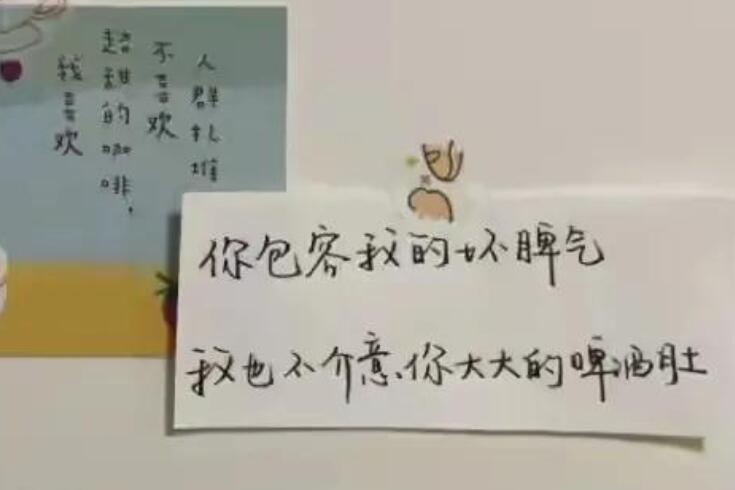 人群扎堆
不喜欢
超甜的咖啡，
我喜欢
你包容我的坏脾气
我也不介意你大大的啤酒肚